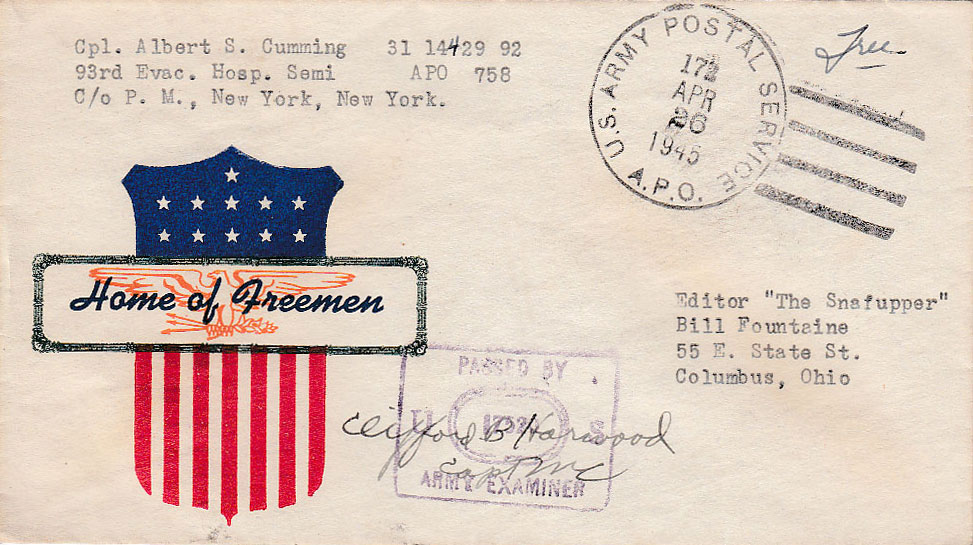 Cpl. Albert S. Cumming 31 14429 92
93rd Evac. Hosp. Semi APO 758
C/o P. M., New York, New York.
U.S. ARMY POSTAL SERVICE
172
APR
26
1945
A.P.O.
Free
Home of Freemen
Editor "The Snafupper"
Bill Fountaine
55 E. State St.
Columbus, Ohio
PASSED BY
U S
Clifford B Harwood
Capt MC
ARMY EXAMINER